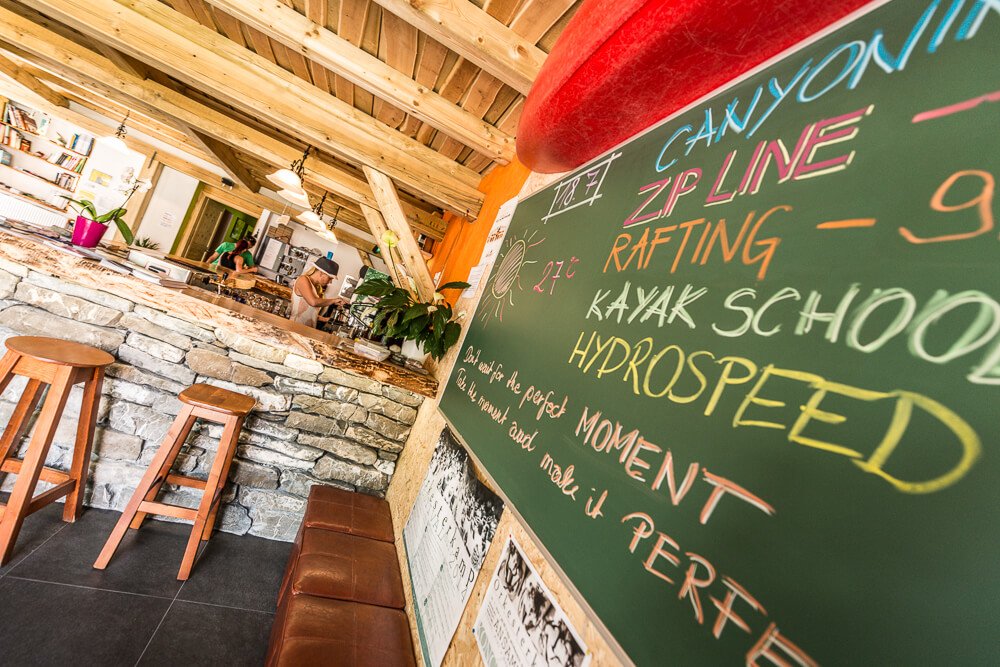 18.7
27°C
CANYONIN
ZIP LINE -
RAFTING - 9
KAYAK SCHOO
HYDROSPEED
Don't wait for the perfect MOMENT
Take the moment and make it PERFE